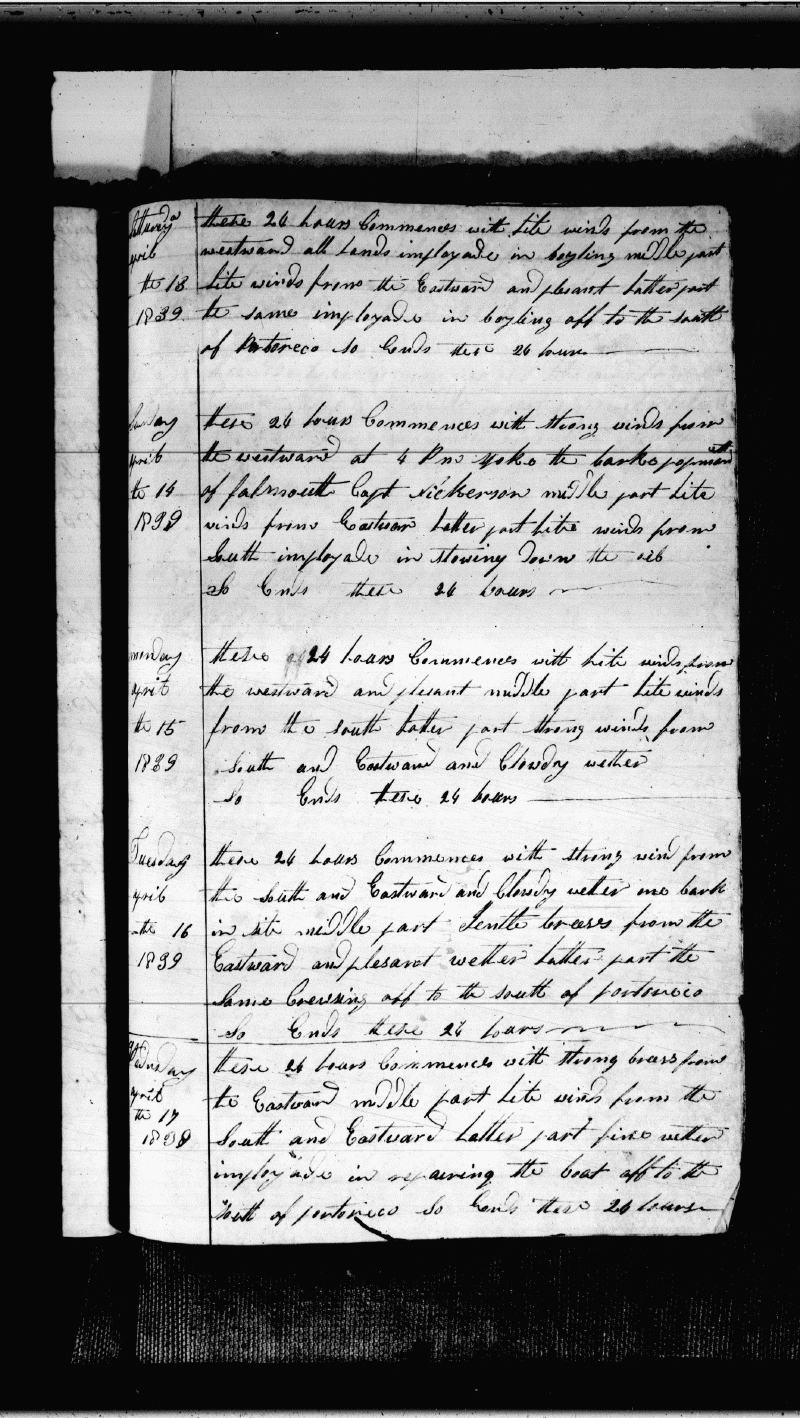 Saturday these 24 hours Commences with Lite winds from the
april westward all hands imployade in boyling middle part
the 13 Lite winds from the Eastward and plesant Latter part
1839 the same imployade in boyling off to the south
of Portoreco So Ends these 24 hours
Sunday these 24 hours Commences with strong winds from
april the westward at 4 Pm spoke the barke
the 14 of falmouth Capt Nickerson middle part Lite
1839 winds from Eastwar Latter part Lite winds from
South imployade in stowing down the oil
So Ends these 24 hours
monday these 24 hours Commences with Lite winds from
april the westward and plesant middle part Lite winds
the 15 from the south Latter part strong winds from
1839 South and Eastward and Cloudy wether
So Ends these 24 hours
Tuesday these 24 hours Commences with strong wind from
april the South and Eastward and Cloudy wether one bark
the 16 in site middle part Gentle breses from the
1839 Eastward and plesant wether Latter part the
Same Creusing off to the south of portoreco
So Ends these 24 hours
Wednsday these 24 hours Commences with strong bress from
april the Eastward middle part Lite winds from the
the 17 South and Eastward Latter part fine wether
1839 imployade in repairing the boat off to the
South of portoreco So Ends these 24 hours